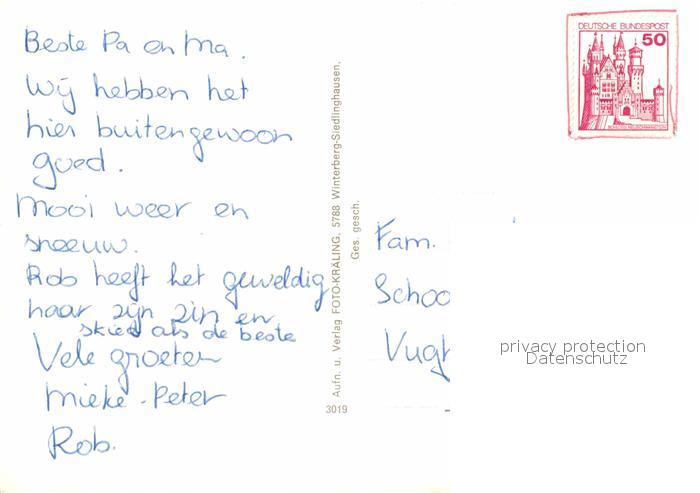 Beste Pa en Ma.
Wij hebben het
hier buitengewoon
goed.
Mooi weer en
sneeuw.
Rob heeft het geweldig
naar zijn zin en
skied als de beste
Vele groeten
Mieke - Peter
Rob.
Aufn. u. Verlag FOTO-KRÄLING, 5788 Winterberg-Siedlinghausen,
Ges. gesch.
3019
DEUTSCHE BUNDESPOST
50
SCHLOSS NEUSCHWANSTEIN
Fam.
Schoo
Vugh
privacy protection
Datenschutz